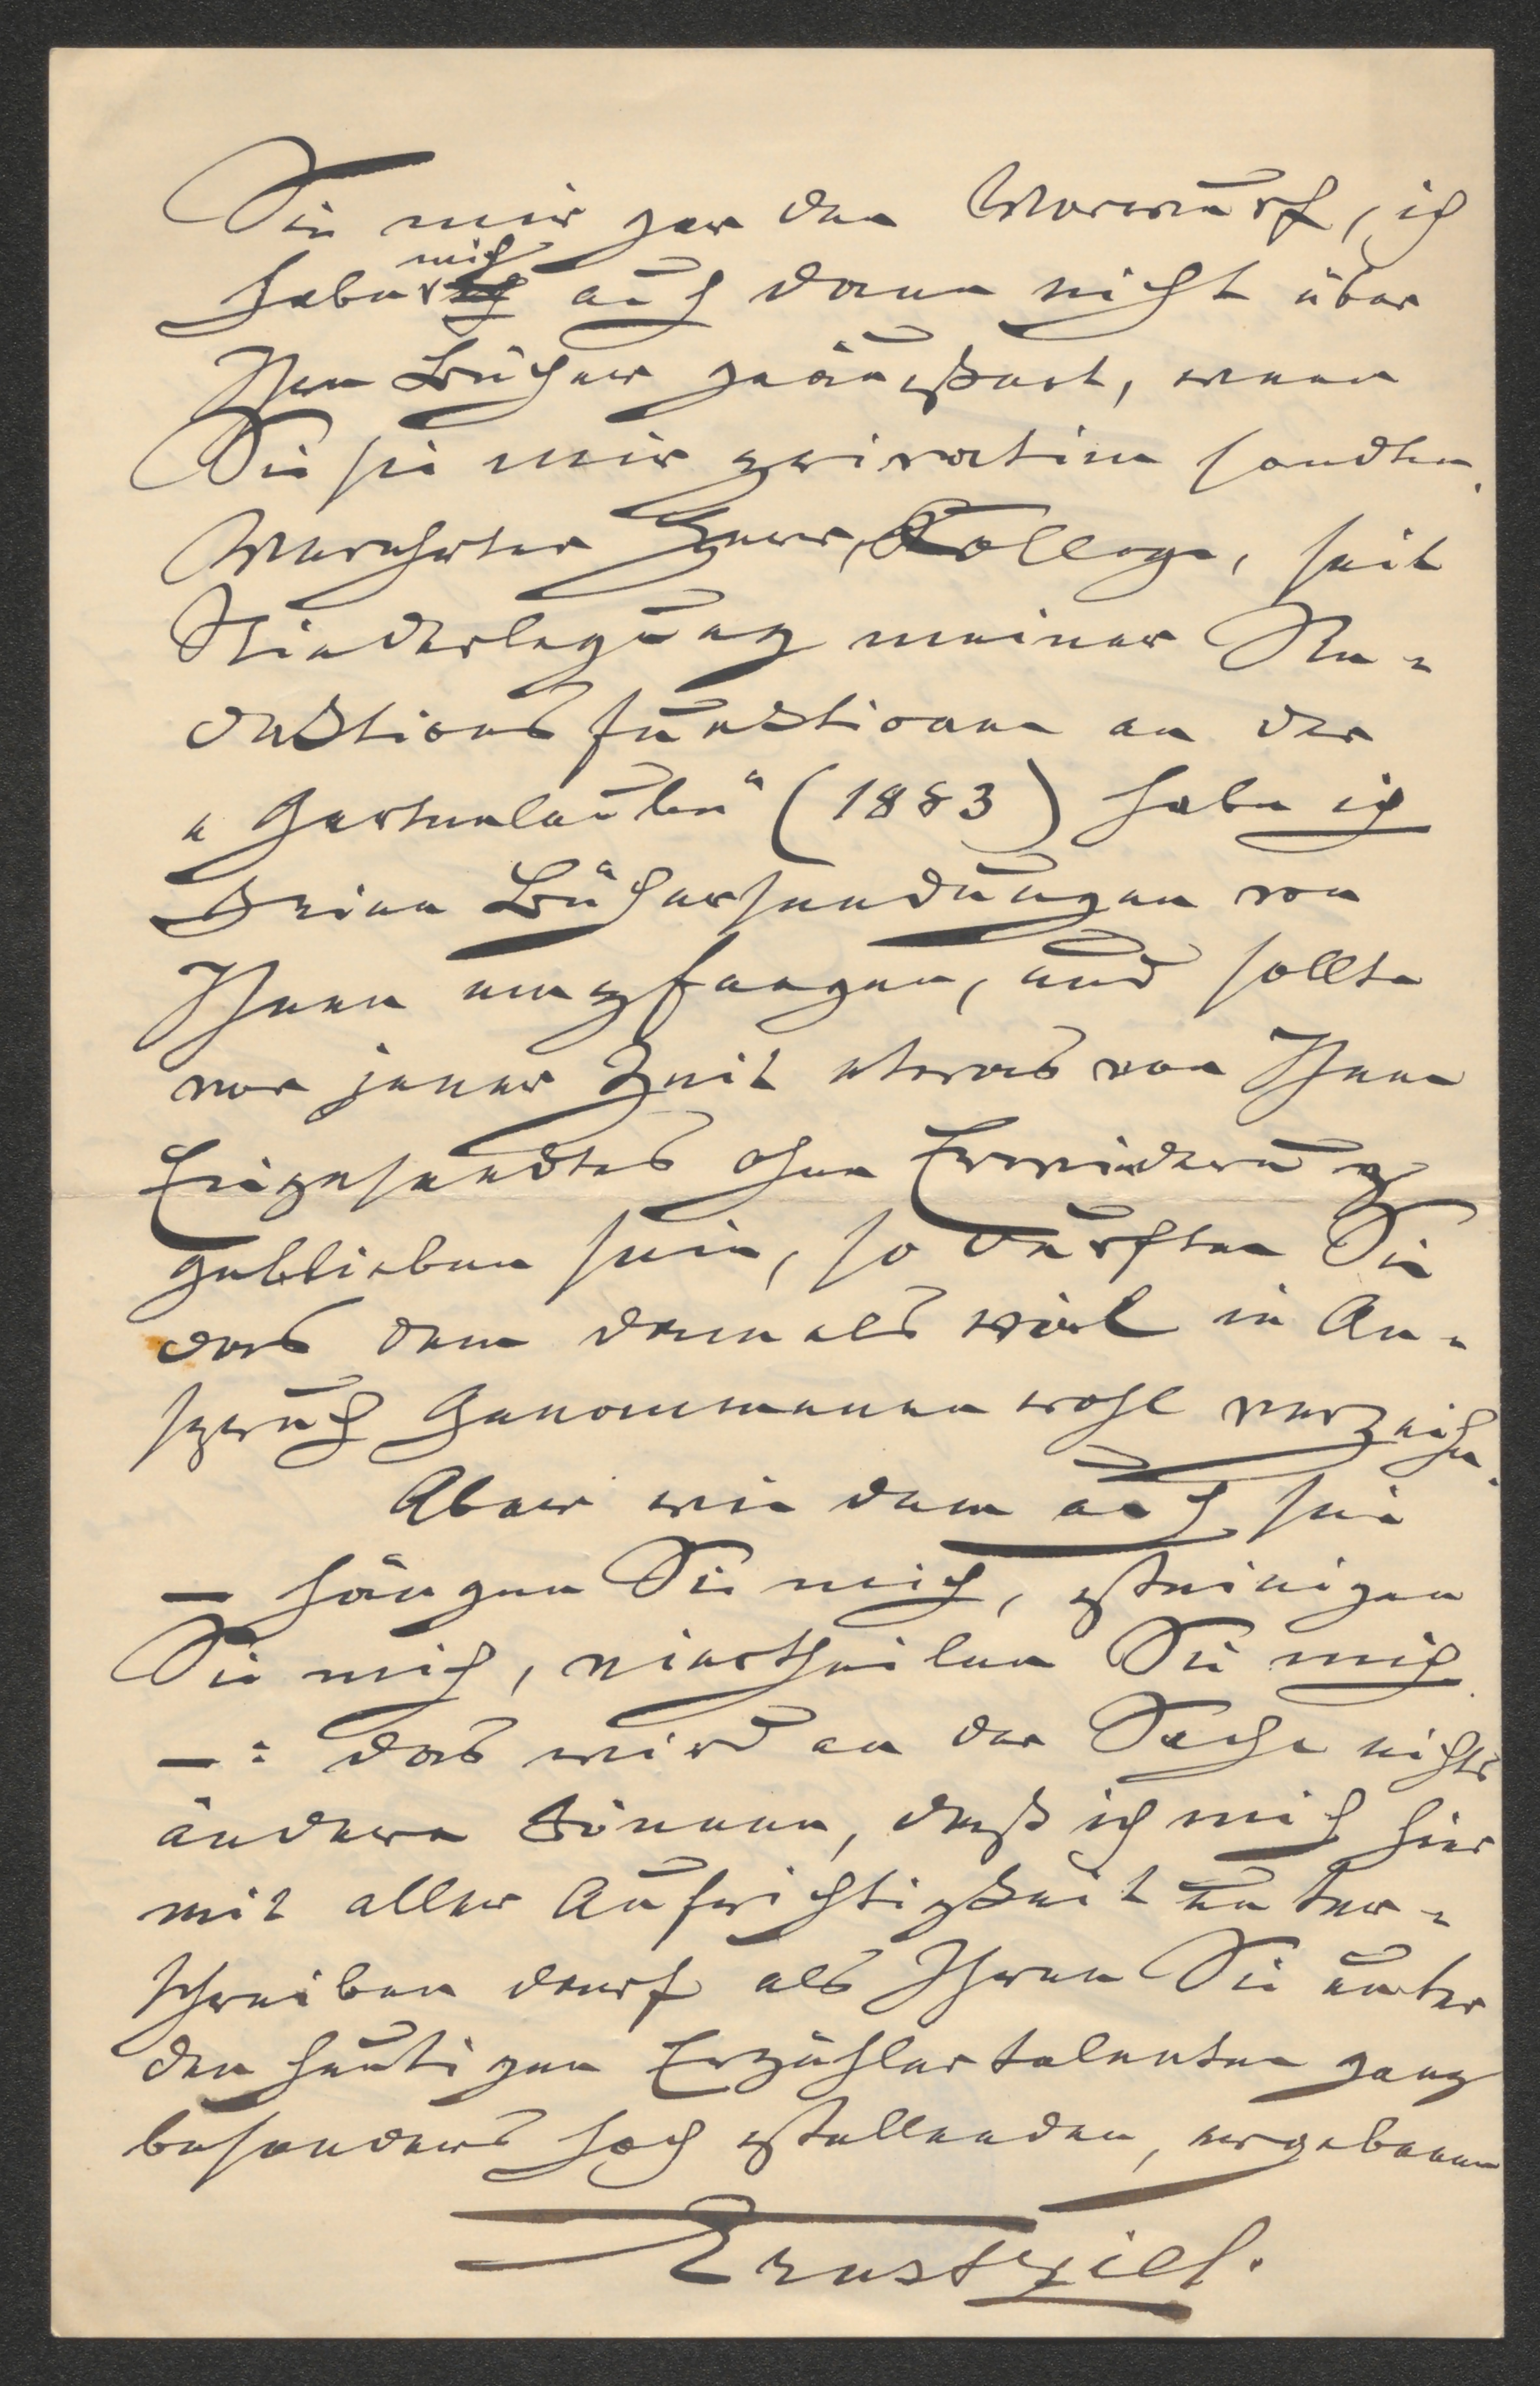 Sie mir gar den Vorwurf, ich
mich
habe auch dann nicht über
Ihre Bücher geäußert, wenn
Sie sie mir privatim sandten.
Verehrter Herr Kollege, seit
Niederlegung meiner Re-
daktionsfunktionen an der
„Gartenlaube“ (1883) habe ich
keine Büchersendungen von
Ihnen empfangen, und sollte
vor jener Zeit etwas von Ihnen
Eingesandtes ohne Erwiderung
geblieben sein, so dürften Sie
das dem damals viel in An-
spruch Genommenen wohl verzeihen.
Aber wie dem auch sei
– hängen Sie mich, steinigen
Sie mich, viertheilen Sie mich
–: das wird an der Sache nichts
ändern können, daß ich mich hier
mit aller Aufrichtigkeit unter-
schreiben darf als Ihren Sie unter
den heutigen Erzählertalenten ganz
besonders hoch stellenden, ergebenen
Ernst Ziel.